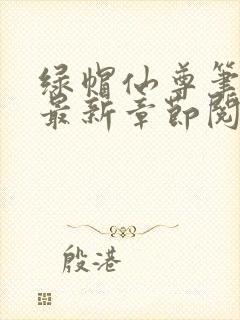 绿帽仙尊笔
最新章节阅
殷港